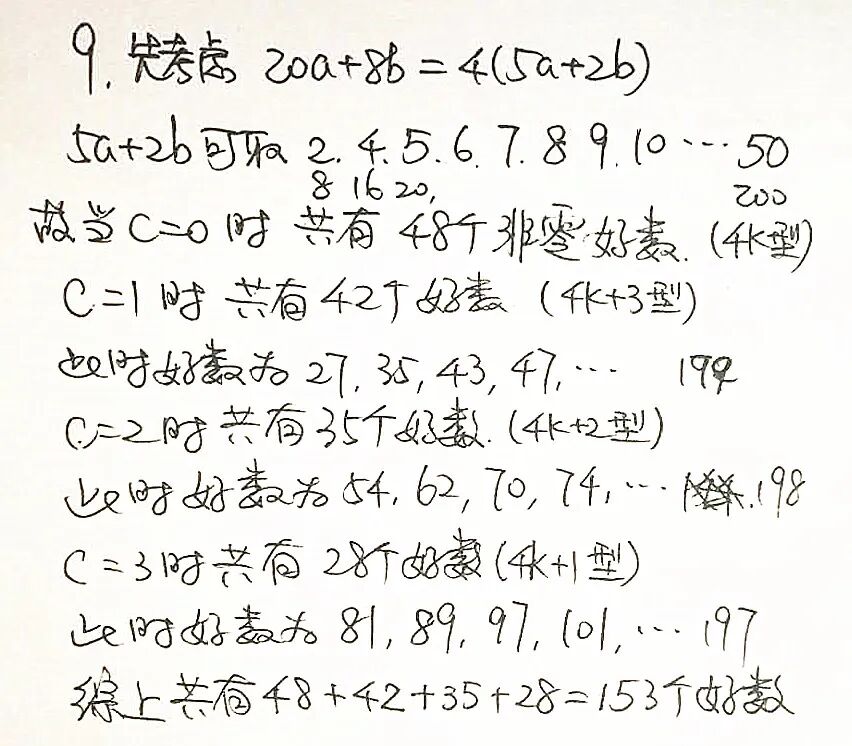 9. 先考虑 20a+8b=4(5a+2b)
5a+2b可取 2.4.5.6.7.8 9.10…50
8 16 20, 200
故当C=0时 共有 48个非零好数. (4K型)
C=1时 共有42个好数 (4k+3型)
此时好数为 27, 35, 43, 47, … 199
C=2时 共有35个好数. (4k+2型)
此时好数为 54, 62, 70, 74, … 198
C=3时共有 28个好数(4k+1型)
此时好数为 81, 89, 97, 101, … 197
综上共有48+42+35+28=153个好数